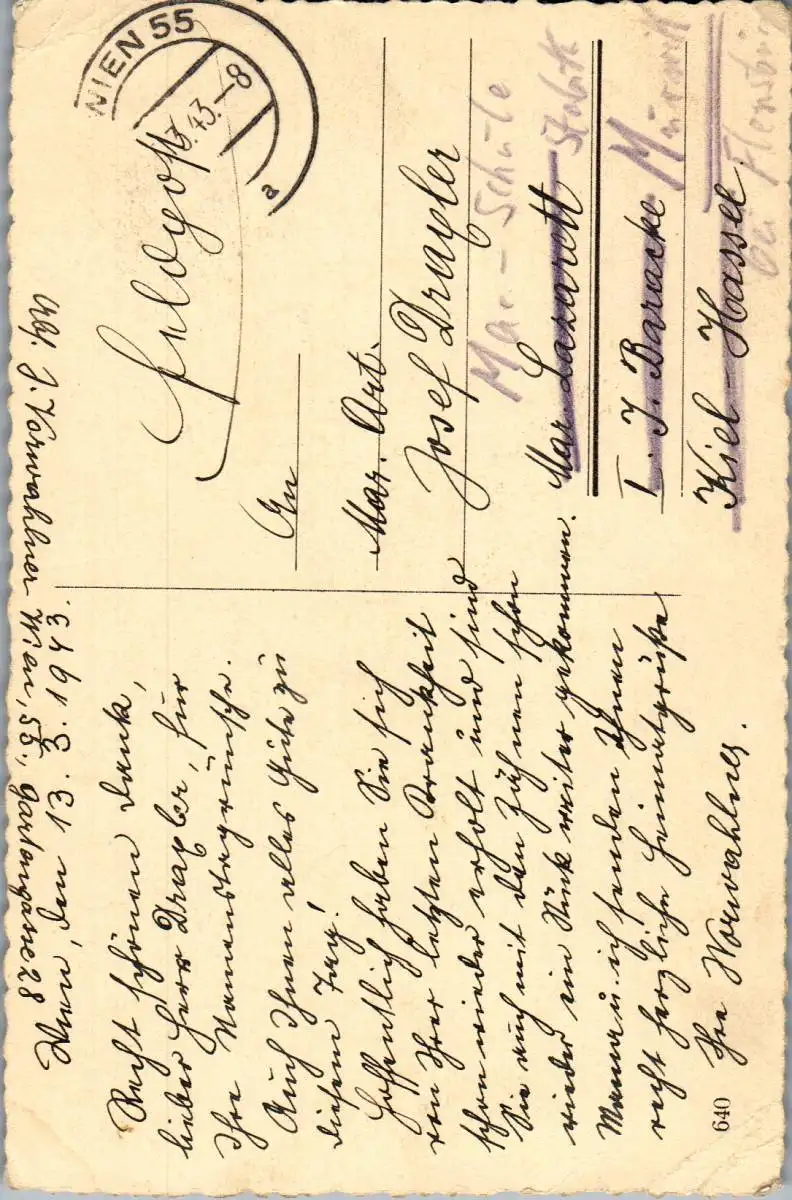 Abs. J. Vorwahlner Wien, 55, Gartengasse 28
Wien, den 13. 3. 1943.
Recht schönen Dank,
lieber Herr Draxler, für
Ihre Namenstagwünsche.
Auch Ihnen alles Gute zu
diesem Tag!
Hoffentlich haben Sie sich
von Ihrer letzten Krankheit
schon wieder erholt und sind
Sie auch mit den Zähnen schon
wieder ein Stück weiter gekommen.
Mama u. ich senden Ihnen
recht herzliche Heimatgrüße
Ihre Vorwahlner.
640
WIEN 55
3.43.-8
a
Feldpost
An
Mar. Art.
Josef Draxler
Mar.-Schule
Mar. Lazarett
I. J. Baracke Mürwik
Kiel-Hassee
bei Flensburg